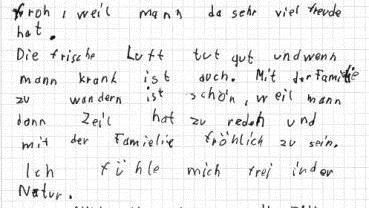 froh, weil mann da sehr viel freude
hat.
Die frische Luft tut gut und wenn
mann krank ist auch. Mit der Familie
zu wandern ist schön, weil mann
dann Zeit hat zu reden und
mit der Famielie fröhlich zu sein.
Ich fühle mich frei in der
Natur.